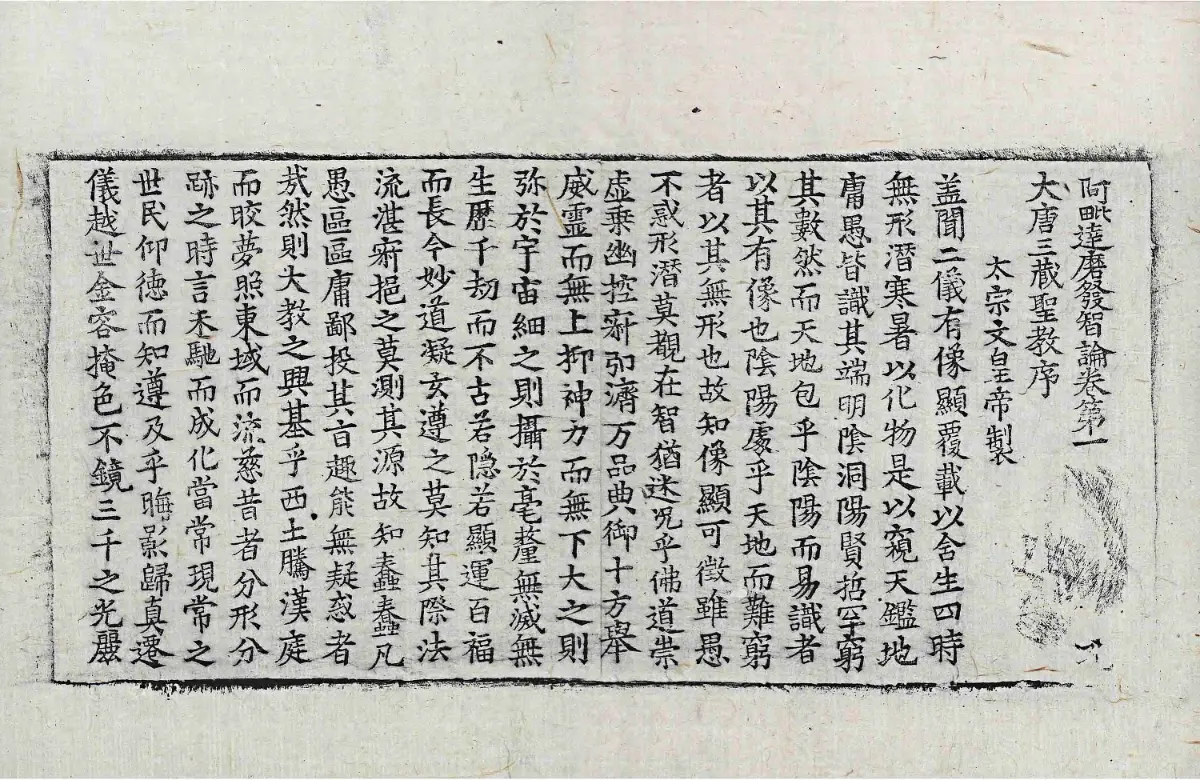 阿毗達磨發智論卷第一
大唐三藏聖教序
太宗文皇帝製
盖聞二儀有像顯覆載以含生四時
無形潛寒暑以化物是以窺天鑑地
庸愚皆識其端明陰洞陽賢哲罕窮
其數然而天地包乎陰陽而易識者
以其有像也陰陽處乎天地而難窮
者以其無形也故知像顯可徵雖愚
不惑形潛莫覩在智猶迷况乎佛道崇
虛乗幽控寂弘濟万品典御十方舉
威靈而無上抑神力而無下大之則
弥於宇宙細之則攝於毫釐無滅無
生歷千劫而不古若隱若顯運百福
而長今妙道凝玄遵之莫知其際法
流湛寂挹之莫測其源故知蠢蠢凡
愚區區庸鄙投其㫖趣能無疑惑者
㢤然則大教之興基乎西土騰漢庭
而皎夢照東域而流慈昔者分形分
跡之時言未馳而成化當常現常之
世民仰德而知遵及乎晦影歸真遷
儀越世金容掩色不鏡三千之光麗